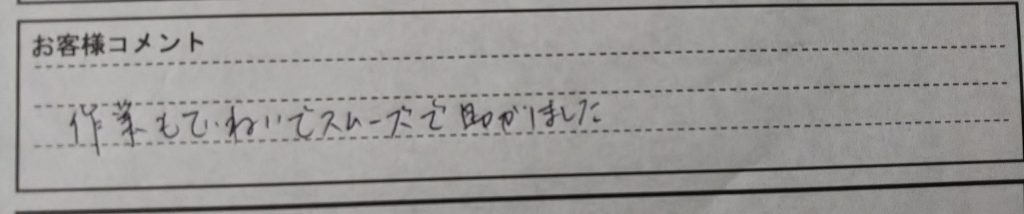 お客様コメント
作業もていねいでスムーズで助かりました